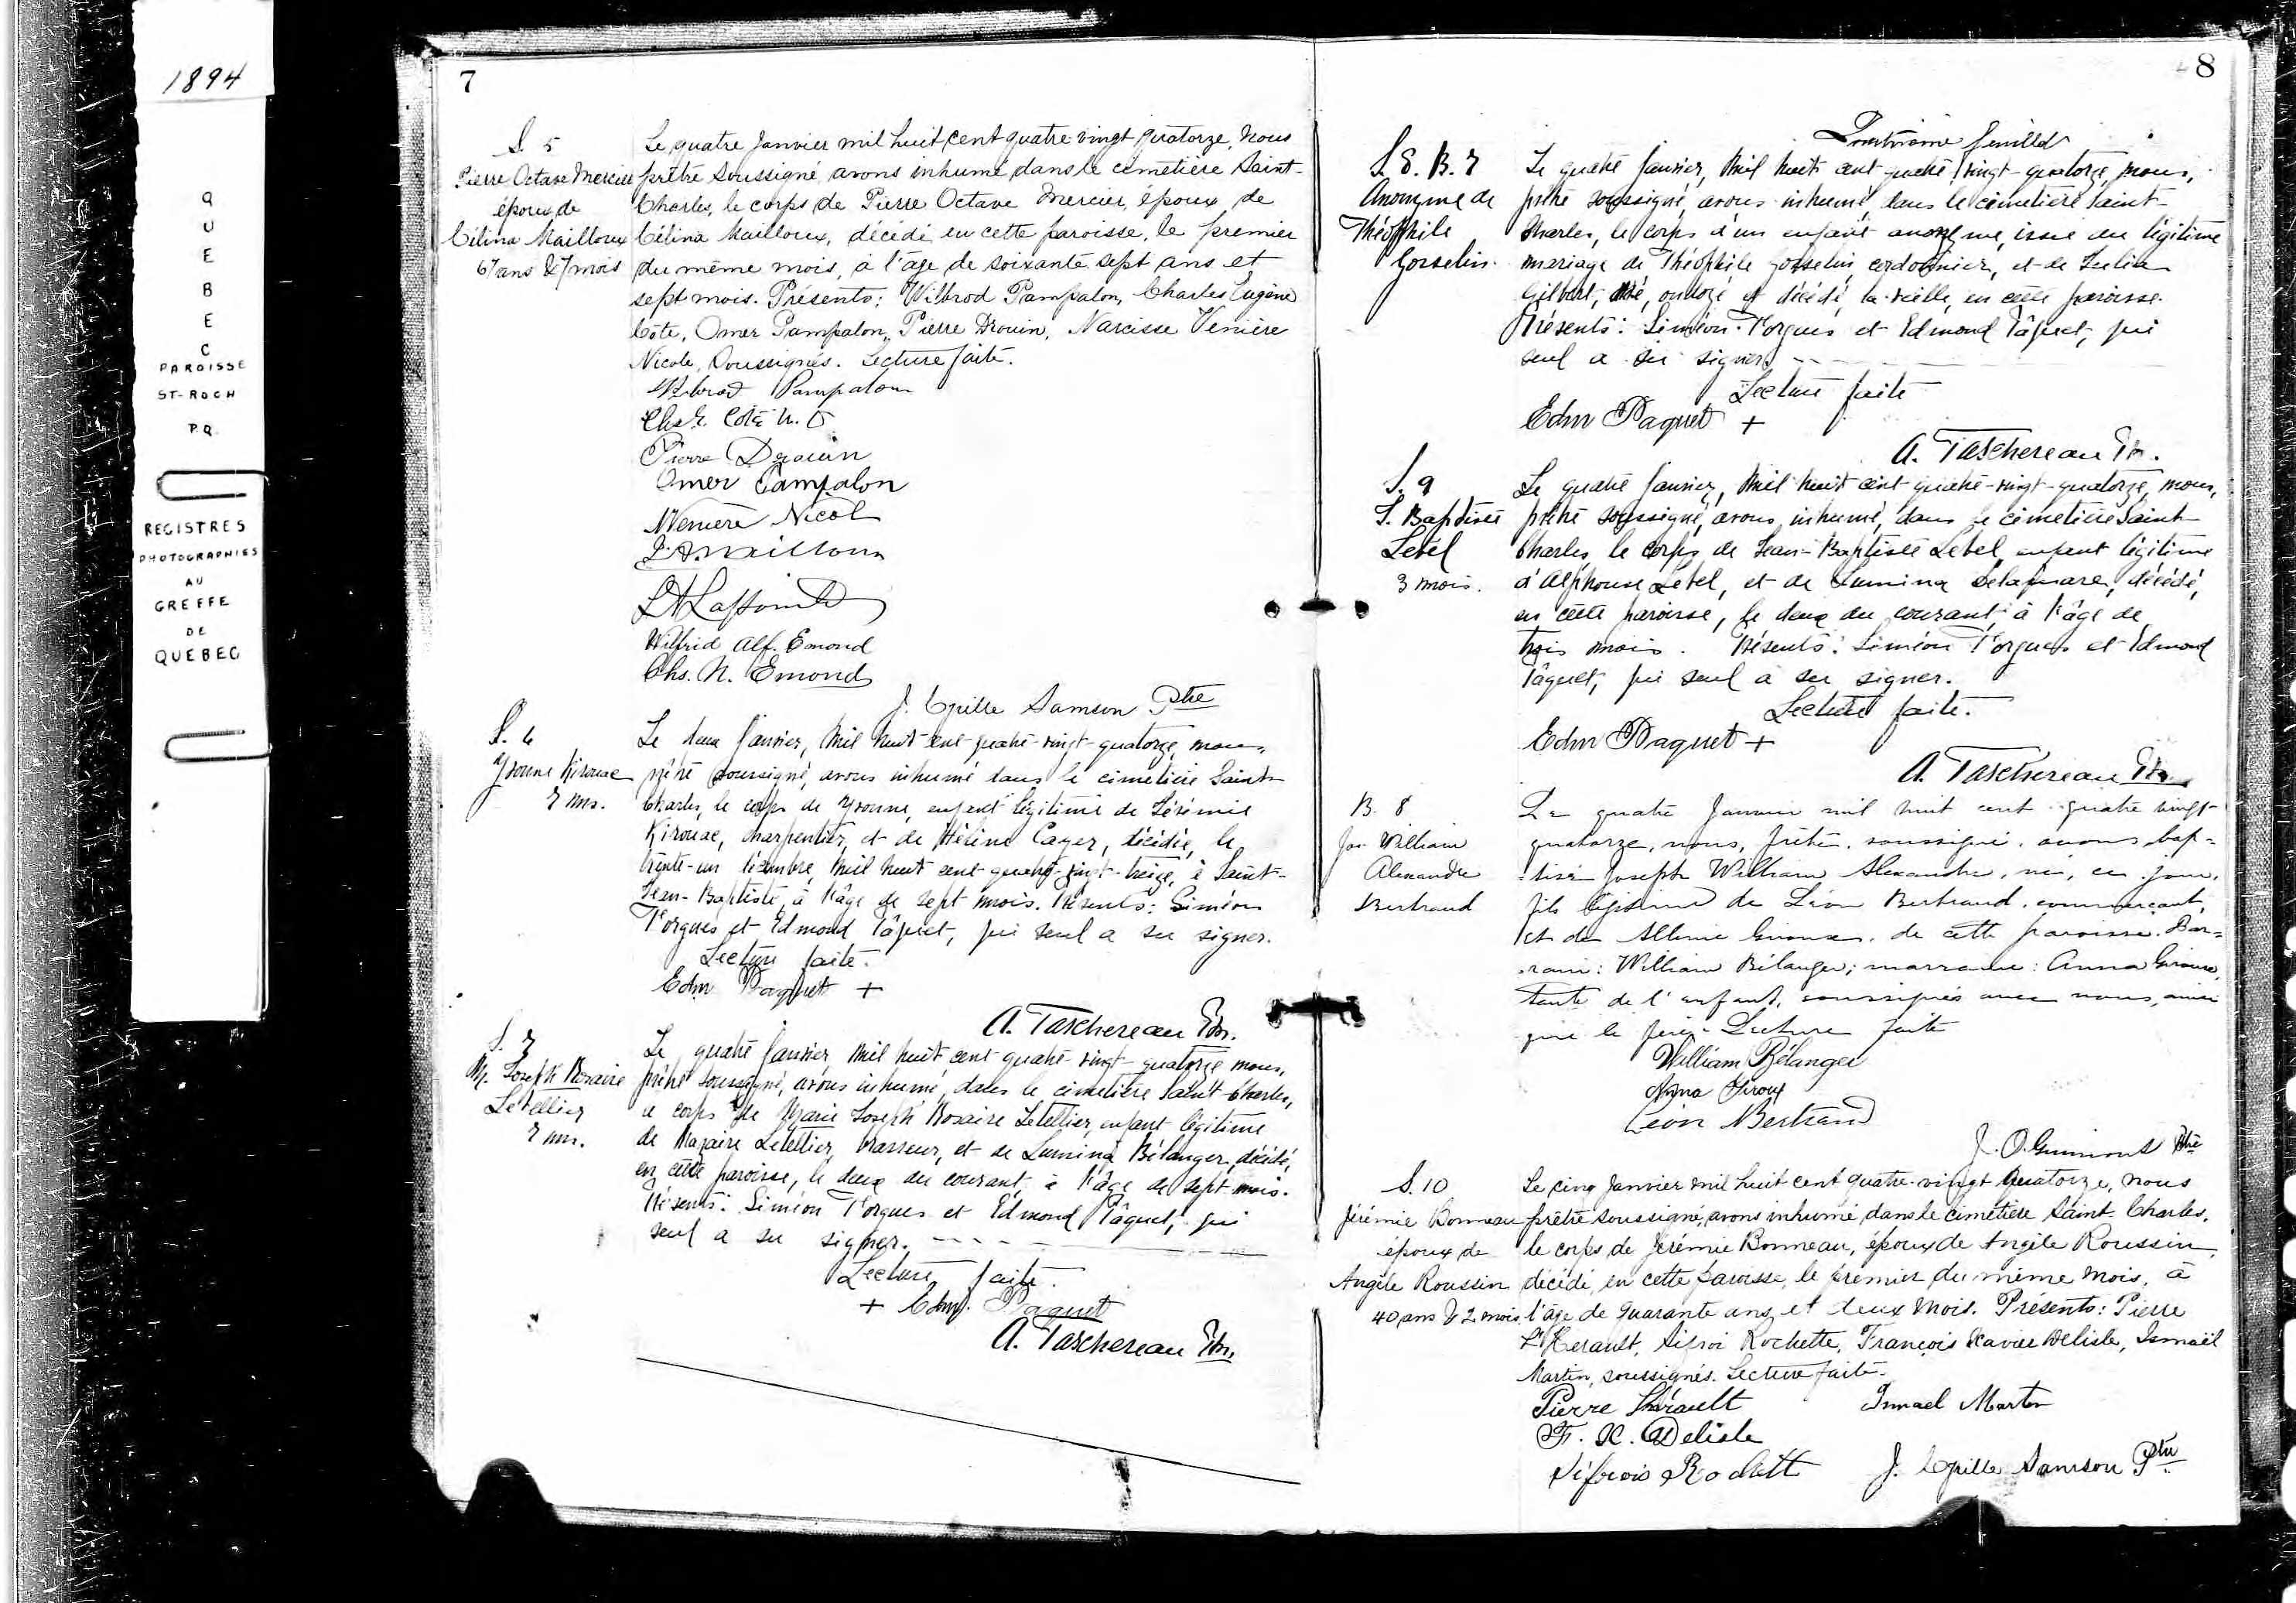 1894
QUEBEC
PAROISSE
ST-ROCH
P.Q.
REGISTRES
PHOTOGRAPHIES
AU
GREFFE
DE
QUEBEC
7
S. 5
Pierre Octave Mercier
époux de
Célina Mailloux
67 ans & 7 mois
Le quatre Janvier mil huit cent quatre-vingt quatorze, nous
prêtre soussigné avons inhumé dans le cimetière Saint-
Charles, le corps de Pierre Octave Mercier, époux de
Célina Mailloux, décédé en cette paroisse, le premier
du même mois, à l'age de soixante sept ans et
sept mois. Présents: Wilbrod Pampalon, Charles Eugène
Côté, Omer Pampalon, Pierre Drouin, Narcisse Venière
Nicole, soussignés. Lecture faite.
Wilbrod Pampalon
Chs E. Coté
Pierre Drouin
Omer Pampalon
NVenière Nicol
Wilfrid Alf. Emond
Chs. N. Emond
J. Cyrille Samson Ptre
S. 6
Yvonne Kirouac
7 ms.
Le deux Janvier, mil huit cent quatre-vingt-quatorze, nous,
prêtre soussigné, avons inhumé dans le cimetière Saint-
Charles, le corps de Yvonne, enfant légitime de Jérémie
Kirouac, charpentier, et de Hélène Cayer, décédée, le
trente-un décembre, mil huit cent quatre-vingt-treize, à Saint-
Jean-Baptiste, à l'âge de sept mois. Présents: Siméon
Torgues et Edmond Pâquet, qui seul a su signer.
Lecture faite.
Edm Paquet +
A. Taschereau Ptr.
S. 7
M. Joseph Rosaire
Letellier
7 ms.
Le quatre Janvier, mil huit cent quatre-vingt-quatorze, nous,
prêtre soussigné, avons inhumé, dans le cimetière Saint Charles,
le corps de Marie Joseph Rosaire Letellier, enfant légitime
de Nazaire Letellier, brasseur, et de Lumina Bélanger, décédé,
en cette paroisse, le deux du courant, à l'âge de sept mois.
Présents: Siméon Torgues et Edmond Pâquet, qui
seul a su signer.
Lecture faite.
+ Edm. Paquet
A. Taschereau Ptr.
8
feuillet
S. 8. B. 7
Anonyme de
Théophile
Gosselin.
Le quatre Janvier, mil huit cent quatre-vingt-quatorze, nous,
prêtre soussigné, avons inhumé, dans le cimetière Saint-
Charles, le corps d'un enfant anonyme, issu du légitime
mariage de Théophile Gosselin, cordonnier, et de Julia
Gilbert, né, ondoyé et décédé, la veille, en cette paroisse.
Présents: Siméon Torgues et Edmond Pâquet, qui
seul a su signer.
Lecture faite
Edm Paquet +
A. Taschereau Ptr.
S. 9
J. Baptiste
Lebel
3 mois.
Le quatre Janvier, mil huit cent quatre-vingt-quatorze, nous,
prêtre soussigné, avons inhumé, dans le cimetière Saint-
Charles, le corps de Jean-Baptiste Lebel, enfant légitime
d'Alphonse Lebel, et de Lumina Delamare, décédé,
en cette paroisse, le deux du courant, à l'âge de
trois mois. Présents: Siméon Torgues et Edmond
Pâquet, qui seul a su signer.
Lecture faite.
Edm Paquet +
A. Taschereau Ptr.
B. 8
Jos. William
Alexandre
Bertrand
Le quatre Janvier mil huit cent quatre vingt
quatorze, nous, prêtre, soussigné, avons bap-
tisé Joseph William Alexandre, né, ce jour,
fils légitime de Léon Bertrand, commerçant,
et de Giroux, de cette paroisse. Par-
rain: William Bélanger; marraine: Anna Giroux,
tante de l'enfant, soussignés avec nous, ainsi
que le père. Lecture faite
William Bélanger
Anna Giroux
Léon Bertrand
J. O. Guimont Ptre
S. 10
Jérémie Bonneau
époux de
Angèle Roussin
40 ans & 2 mois
Le cinq Janvier mil huit cent quatre-vingt quatorze, nous
prêtre soussigné, avons inhumé dans le cimetière Saint-Charles,
le corps de Jérémie Bonneau, époux de Angèle Roussin,
décédé en cette paroisse, le premier du même mois, à
l'âge de quarante ans, et deux mois. Présents: Pierre
L'Hérault, Sifroi Rochette, François Xavier Delisle, Ismaël
Martin, soussignés. Lecture faite.
Pierre Lhérault
Ismael Martin
F. X. Delisle
Sifrois Rochett
J. Cyrille Samson Ptre